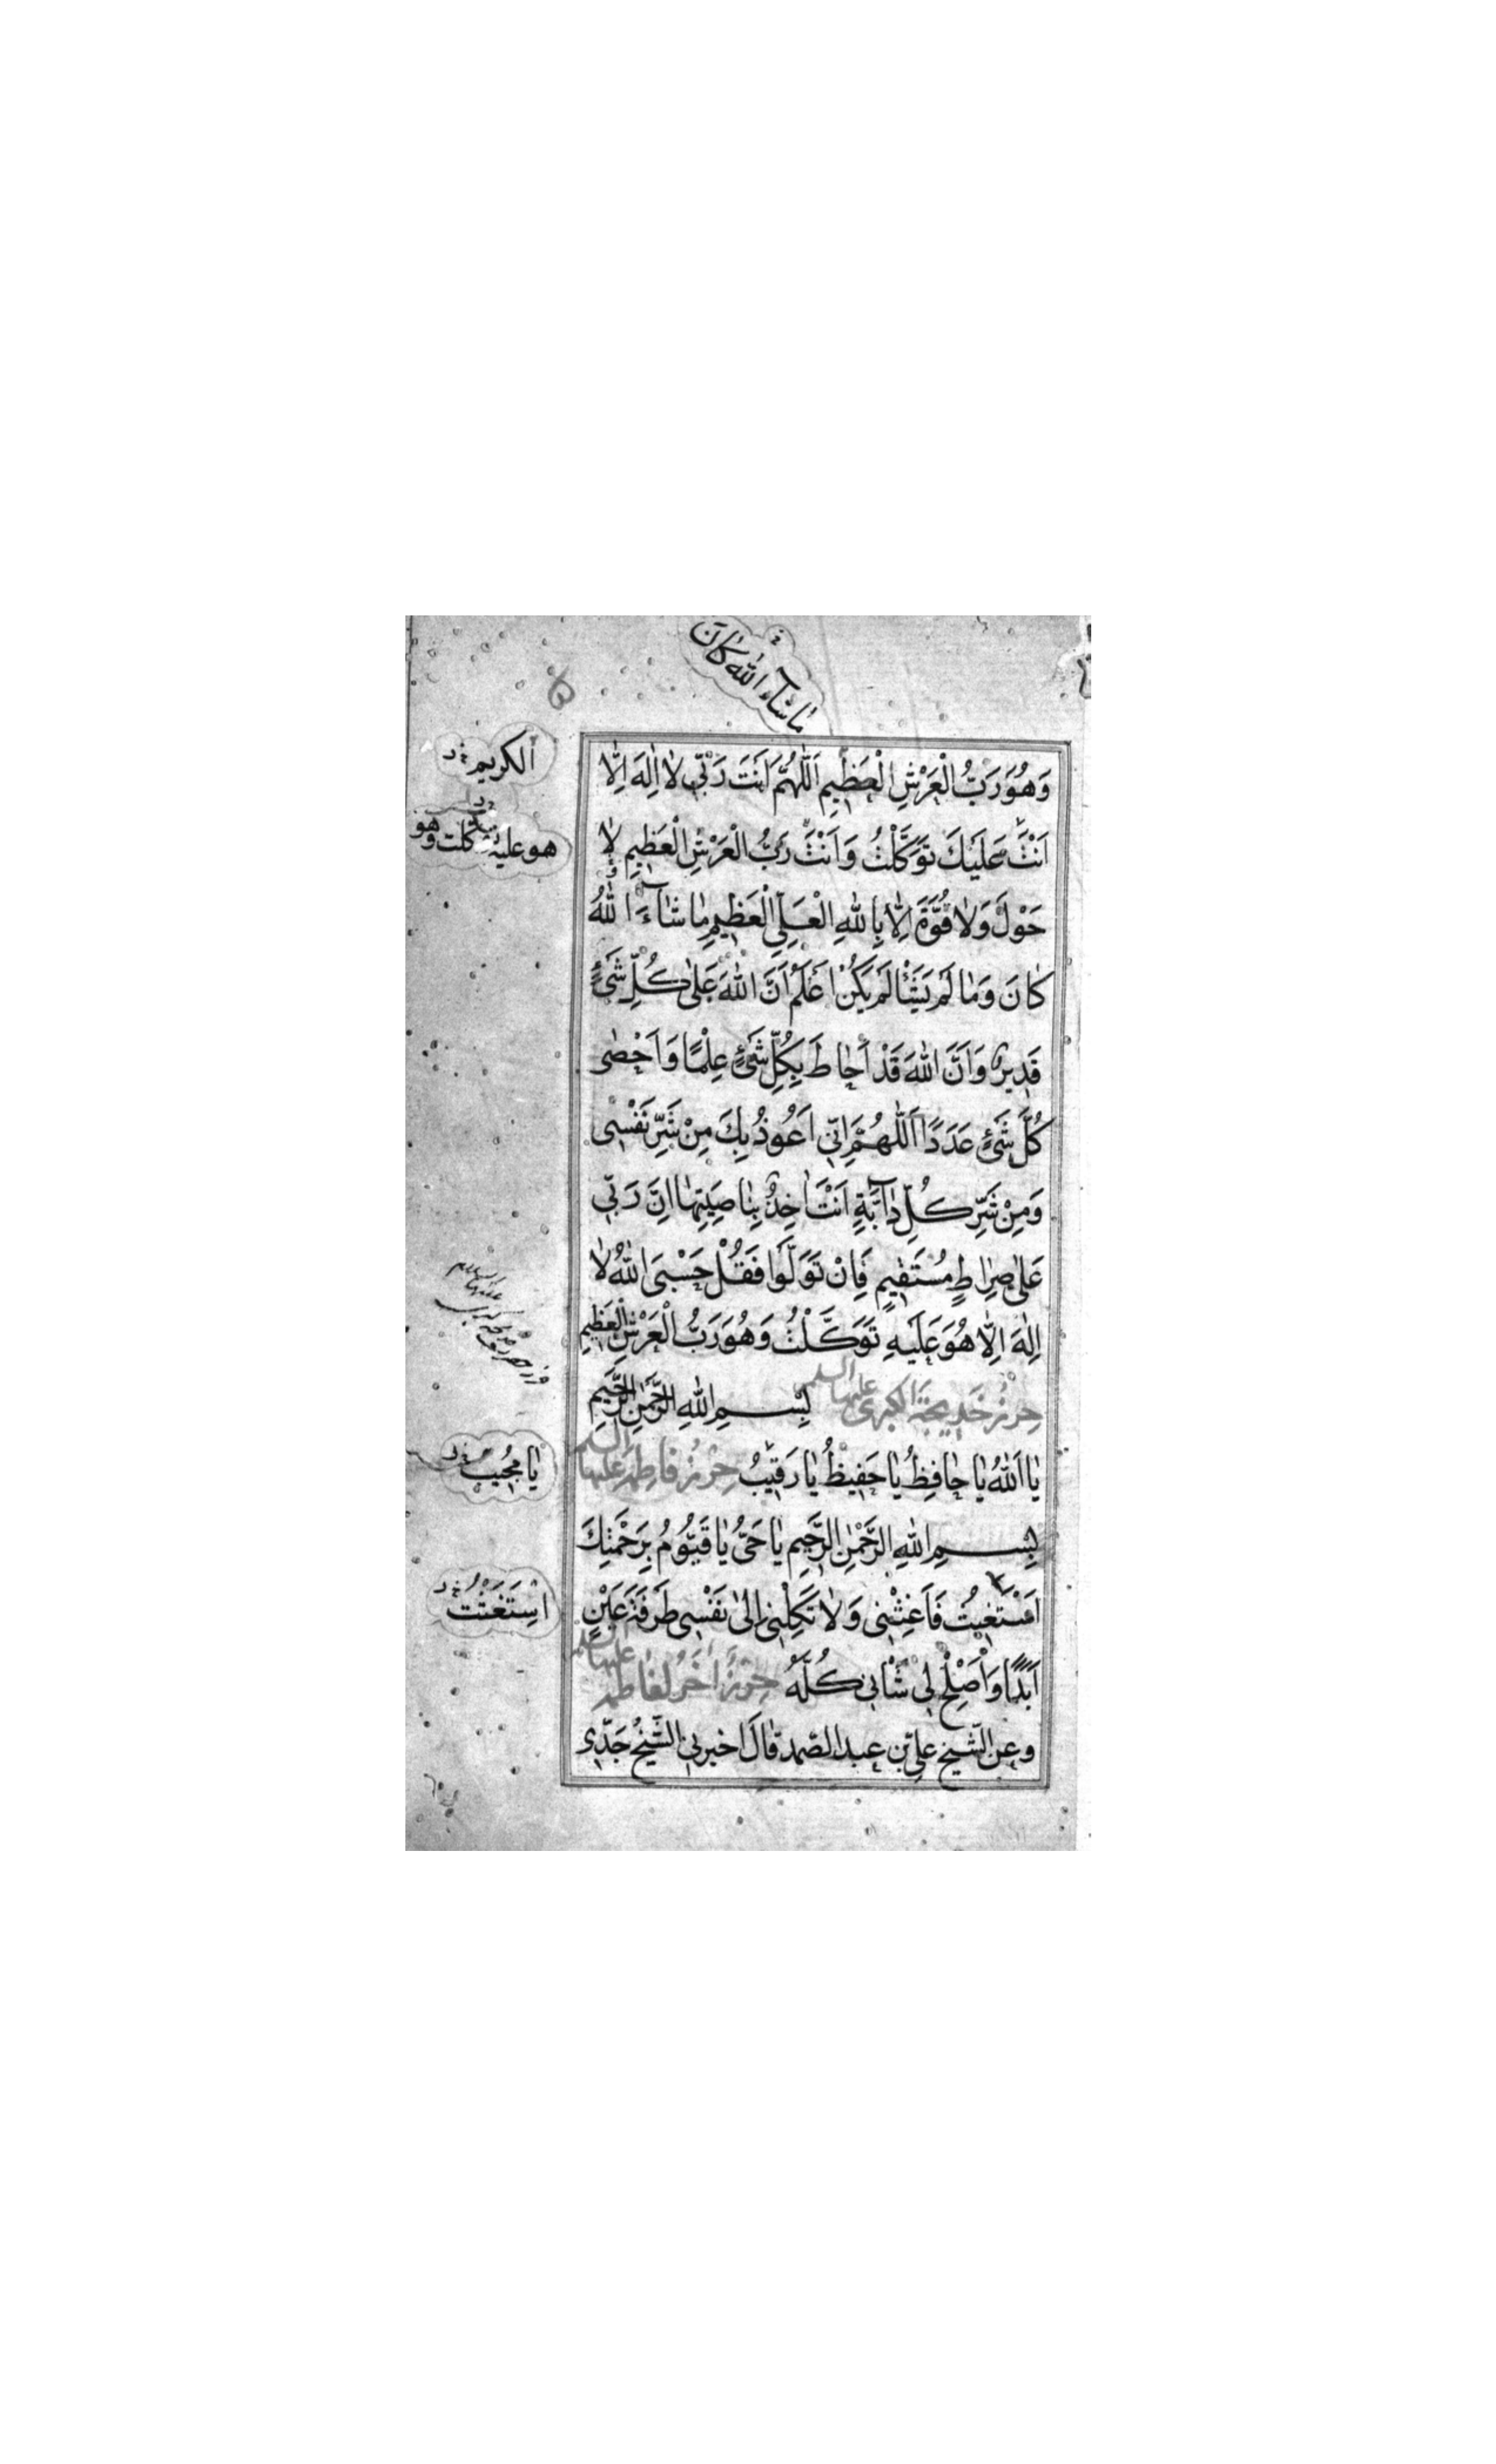 ما شآء الله كان
وَهُوَ رَبُّ الْعَرْشِ الْعَظِيمِ اَللّٰهُمَّ اَنْتَ رَبّي لا اِلٰهَ اِلَّا
اَنْتَ عَلَيْكَ تَوَكَّلْتُ وَاَنْتَ رَبُّ الْعَرْشِ الْعَظِيمِ لا
حَوْلَ وَلا قُوَّةَ اِلّا بِاللهِ الْعَلِيِّ الْعَظِيمِ ما شآءَ اللهُ
كانَ وَما لَمْ يَشَأْ لَمْ يَكُنْ اَعْلَمُ اَنَّ اللهَ عَلى كُلِّ شَئٍ
قَدِيرٌ وَاَنَّ اللهَ قَدْ اَحاطَ بِكُلِّ شَئٍ عِلْمًا وَاَحْصى
كُلَّ شَئٍ عَدَدًا اَللّٰهُمَّ اِنّي اَعُوذُ بِكَ مِنْ شَرِّ نَفْسى
وَمِنْ شَرِّ كُلِّ دآبَّةٍ اَنْتَ اخِذٌ بِناصِيَتِها اِنَّ رَبّي
عَلى صِراطٍ مُسْتَقِيمٍ فَاِنْ تَوَلَّوْا فَقُلْ حَسْبِىَ اللهُ لا
اِلٰهَ اِلّا هُوَ عَلَيْهِ تَوَكَّلْتُ وَهُوَ رَبُّ الْعَرْشِ الْعَظِيمِ
حِرْزُ خَدِيجَةَ الكبرى عليها السلم بِسْمِ اللهِ الرَّحْمٰنِ الرَّحِيمِ
يا اَللهُ يا حافِظُ يا حَفِيظُ يا رَقِيبُ حِرْزُ فاطمة عليها السلم
بِسْمِ اللهِ الرَّحْمٰنِ الرَّحِيمِ يا حَىُّ يا قَيُّومُ بِرَحْمَتِكَ
اَسْتَغِيثُ فَاَغِثْنى وَلا تَكِلْنى اِلى نَفْسى طَرْفَةَ عَيْنٍ
اَبَدًا وَاَصْلِحْ لِي شَأْني كُلَّهُ حِرْزٌ اخَرُ لفاطمة عليها السلم
وعن الشّيخ علىّ بن عبد الصّمد قال اخبرني الشّيخ جَدّى
الكريم
هو عليه توكلت وهو
يا مُجيب
اسْتَغَثْتُ